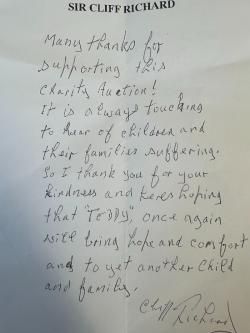 SIR CLIFF RICHARD
Many thanks for
supporting this
Charity Auction!
It is always touching
to hear of children and
their families suffering.
So I thank you for your
kindness and here's hoping
that "TEDDY", once again
will bring hope and comfort
and to yet another child
and family.
Cliff Richard